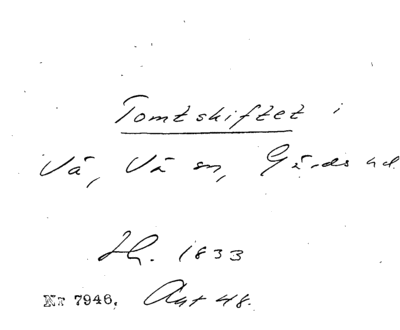 Tomtskiftet i
Vä, Vä sn, Gärds hd.
Hl. 1833
Nr 7946. Akt 48.